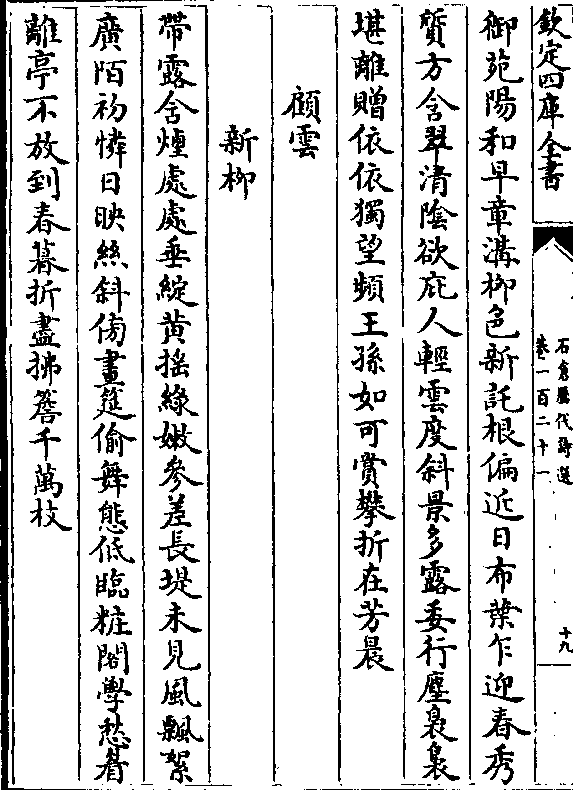 欽定四庫全書
石倉歷代詩選
卷一百二十一
十九
御苑陽和早章溝栁色新託根偏近日布葉乍迎春秀
質方含翠清陰欲庇人輕雲度斜景多露委行塵裊裊
堪離贈依依獨望頻王孫如可賞攀折在芳晨
顧雲
新栁
帶露含煙處處垂綻黄揺緑嫩參差長堤未見風飄絮
廣陌初憐日映絲斜傍畫筵偷舞態低臨粧閣學愁眉
離亭不放到春暮折盡拂簷千萬枝